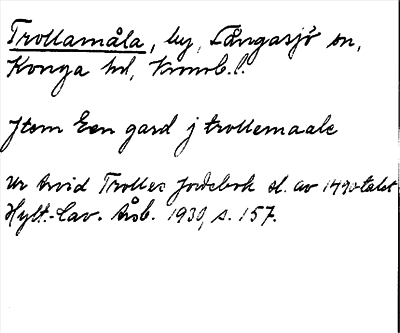 Trollamåla, by, Långasjö sn,
Konga hd, Kronob.l.
Jtem Een gard j trollemaale
Ur Arvid Trolles Jordebok sl. av 1490-talet
Hylt.-Cav. Årsb. 1930, s. 157.